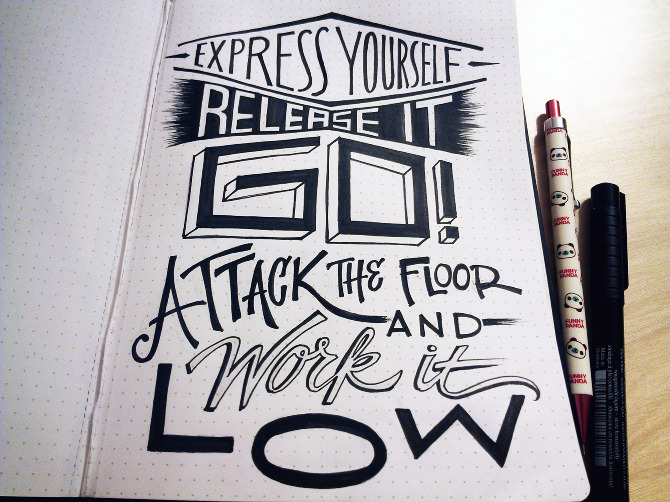 EXPRESS YOURSELF
RELEASE IT
GO!
ATTACK THE FLOOR
AND
Work it
LOW
FUNNY PANDA
FUNNY PANDA
FUNNY PANDA
FUNNY PANDA
FUNNY PANDA